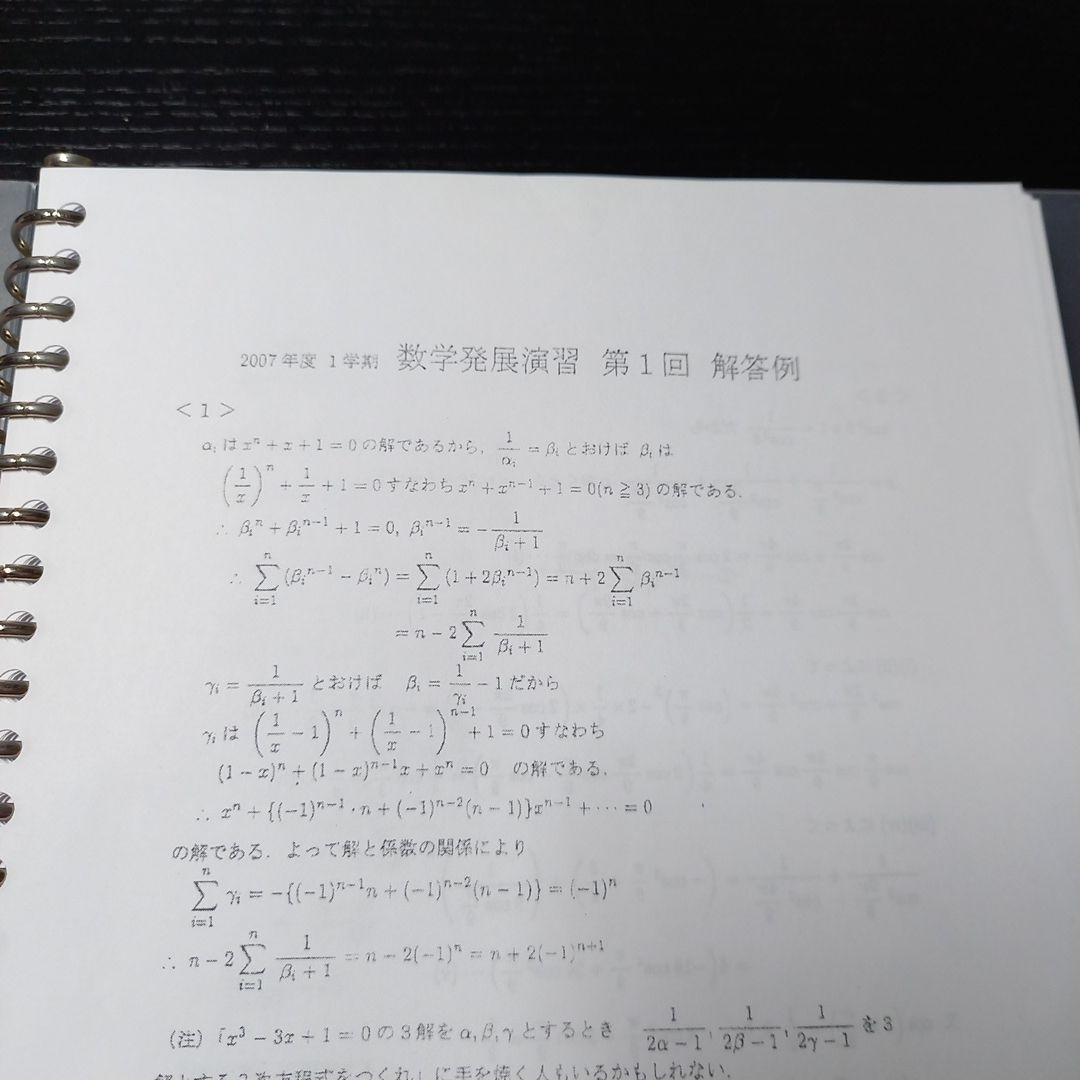 2007年度 1学期 数学発展演習 第1回 解答例
<1>
α_i は x^n + x + 1 = 0 の解であるから, 1/α_i = β_i とおけば β_i は
(1/x)^n + 1/x + 1 = 0 すなわち x^n + x^{n-1} + 1 = 0 (n ≧ 3) の解である.
∴ β_i^n + β_i^{n-1} + 1 = 0, β_i^{n-1} = -1/(β_i + 1)
∴ ∑_{i=1}^{n} (β_i^{n-1} - β_i^n) = ∑_{i=1}^{n} (1 + 2β_i^{n-1}) = n + 2∑_{i=1}^{n} β_i^{n-1}
= n - 2∑_{i=1}^{n} 1/(β_i + 1)
γ_i = 1/(β_i + 1) とおけば β_i = 1/γ_i - 1 だから
γ_i は (1/x - 1)^n + (1/x - 1)^{n-1} + 1 = 0 すなわち
(1-x)^n + (1-x)^{n-1}x + x^n = 0 の解である.
∴ x^n + {(-1)^{n-1}・n + (-1)^{n-2}(n-1)}x^{n-1} + ⋯ = 0
の解である. よって解と係数の関係により
∑_{i=1}^{n} γ_i = -{(-1)^{n-1}n + (-1)^{n-2}(n-1)} = (-1)^n
∴ n - 2∑_{i=1}^{n} 1/(β_i + 1) = n - 2(-1)^n = n + 2(-1)^{n+1}
(注)「x^3 - 3x + 1 = 0 の 3 解を α, β, γ とするとき 1/(2α-1), 1/(2β-1), 1/(2γ-1) を 3
解とする3次方程式をつくれ」に手を焼く人もいるかもしれない.